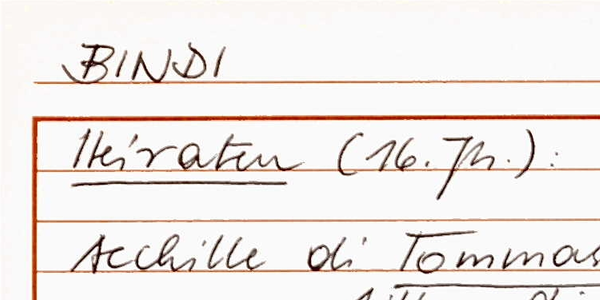 BINDI
Heiraten (16. Jh.):
Achille di Tommas